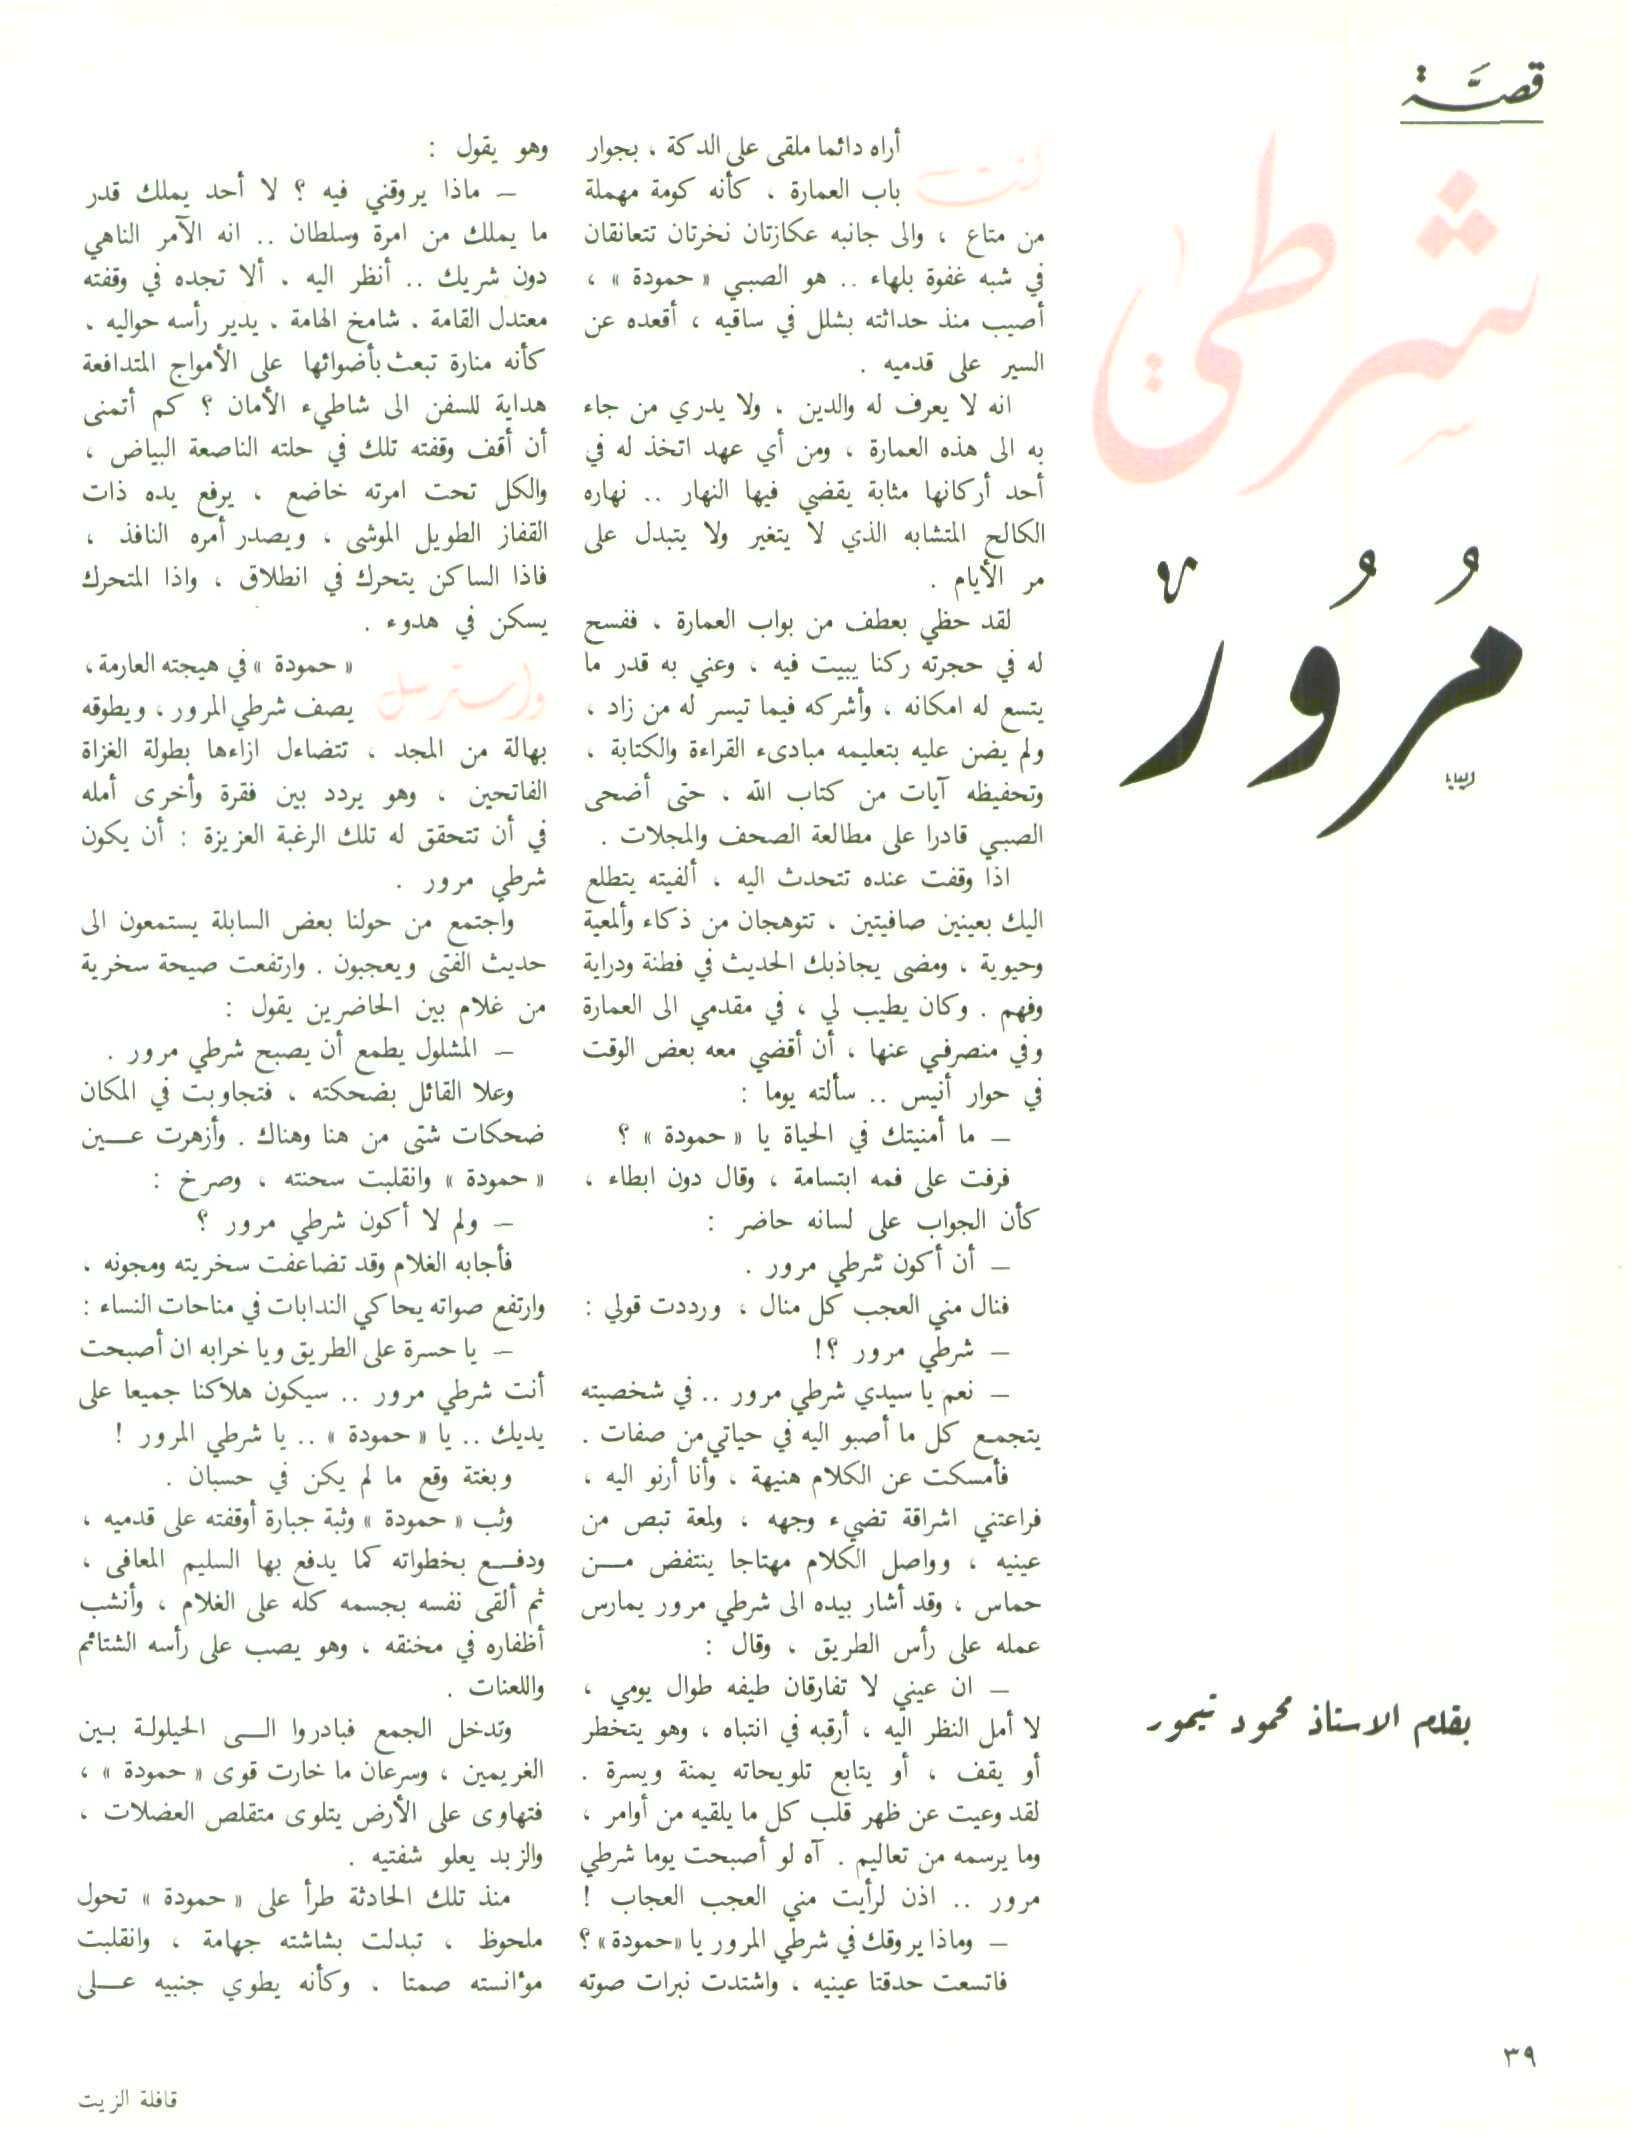 قصة
شرطي
مرور
بقلم الاستاذ محمود تيمور
كنت أراه دائما ملقى على الدكة ، بجوار
باب العمارة ، كأنه كومة مهملة
من متاع ، والى جانبه عكازتان نخرتان تتعانقان
في شبه غفوة بلهاء .. هو الصبي « حمودة » ،
أصيب منذ حداثته بشلل في ساقيه ، أقعده عن
السير على قدميه .
انه لا يعرف له والدين ، ولا يدري من جاء
به الى هذه العمارة ، ومن أي عهد اتخذ له في
أحد أركانها مثابة يقضي فيها النهار .. نهاره
الكالح المتشابه الذي لا يتغير ولا يتبدل على
مر الأيام .
لقد حظي بعطف من بواب العمارة ، ففسح
له في حجرته ركنا يبيت فيه ، وعني به قدر ما
يتسع له امكانه ، وأشركه فيما تيسر له من زاد ،
ولم يضن عليه بتعليمه مبادىء القراءة والكتابة ،
وتحفيظه آيات من كتاب الله ، حتى أضحى
الصبي قادرا على مطالعة الصحف والمجلات .
اذا وقفت عنده تتحدث اليه ، ألفيته يتطلع
اليك بعينين صافيتين ، تتوهجان من ذكاء وألمعية
وحيوية ، ومضى يجاذبك الحديث في فطنة ودراية
وفهم . وكان يطيب لي ، في مقدمي الى العمارة
وفي منصرفي عنها ، أن أقضي معه بعض الوقت
في حوار أنيس .. سألته يوما :
– ما أمنيتك في الحياة يا « حمودة » ؟
فرفت على فمه ابتسامة ، وقال دون ابطاء ،
كأن الجواب على لسانه حاضر :
– أن أكون شرطي مرور .
فنال مني العجب كل منال ، ورددت قولي :
– شرطي مرور ؟!
– نعم يا سيدي شرطي مرور .. في شخصيته
يتجمع كل ما أصبو اليه في حياتي من صفات .
فأمسكت عن الكلام هنيهة ، وأنا أرنو اليه ،
فراعتني اشراقة تضيء وجهه ، ولمعة تبص من
عينيه ، وواصل الكلام مهتاجا ينتفض من
حماس ، وقد أشار بيده الى شرطي مرور يمارس
عمله على رأس الطريق ، وقال :
– ان عيني لا تفارقان طيفه طوال يومي ،
لا أمل النظر اليه ، أرقبه في انتباه ، وهو يتخطر
أو يقف ، أو يتابع تلويحاته يمنة ويسرة .
لقد وعيت عن ظهر قلب كل ما يلقيه من أوامر ،
وما يرسمه من تعاليم . آه لو أصبحت يوما شرطي
مرور .. اذن لرأيت مني العجب العجاب !
– وماذا يروقك في شرطي المرور يا «حمودة» ؟
فاتسعت حدقتا عينيه ، واشتدت نبرات صوته
وهو يقول :
– ماذا يروقني فيه ؟ لا أحد يملك قدر
ما يملك من امرة وسلطان .. انه الآمر الناهي
دون شريك .. أنظر اليه ، ألا تجده في وقفته
معتدل القامة ، شامخ الهامة ، يدير رأسه حواليه ،
كأنه منارة تبعث بأضوائها على الأمواج المتدافعة
هداية للسفن الى شاطىء الأمان ؟ كم أتمنى
أن أقف وقفته تلك في حلته الناصعة البياض ،
والكل تحت امرته خاضع ، يرفع يده ذات
القفاز الطويل الموشى ، ويصدر أمره النافذ ،
فاذا الساكن يتحرك في انطلاق ، واذا المتحرك
يسكن في هدوء .
واسترسل « حمودة » في هيجته العارمة ،
يصف شرطي المرور ، ويطوقه
بهالة من المجد ، تتضاءل ازاءها بطولة الغزاة
الفاتحين ، وهو يردد بين فقرة وأخرى أمله
في أن تتحقق له تلك الرغبة العزيزة : أن يكون
شرطي مرور .
واجتمع من حولنا بعض السابلة يستمعون الى
حديث الفتى ويعجبون . وارتفعت صيحة سخرية
من غلام بين الحاضرين يقول :
– المشلول يطمع أن يصبح شرطي مرور .
وعلا القائل بضحكته ، فتجاوبت في المكان
ضحكات شتى من هنا وهناك . وأزهرت عين
« حمودة » وانقلبت سحنته ، وصرخ :
– ولم لا أكون شرطي مرور ؟
فأجابه الغلام وقد تضاعفت سخريته ومجونه ،
وارتفع صواته يحاكي الندابات في مناحات النساء :
– يا حسرة على الطريق ويا خرابه ان أصبحت
أنت شرطي مرور .. سيكون هلاكنا جميعا على
يديك .. يا « حمودة » .. يا شرطي المرور !
وبغتة وقع ما لم يكن في حسبان .
وثب « حمودة » وثبة جبارة أوقفته على قدميه ،
ودفع بخطواته كما يدفع بها السليم المعافى ،
ثم ألقى نفسه بجسمه كله على الغلام ، وأنشب
أظفاره في مخنقه ، وهو يصب على رأسه الشتائم
واللعنات .
وتدخل الجمع فبادروا الى الحيلولة بين
الغريمين ، وسرعان ما خارت قوى « حمودة » ،
فتهاوى على الأرض يتلوى متقلص العضلات ،
والزبد يعلو شفتيه .
منذ تلك الحادثة طرأ على « حمودة » تحول
ملحوظ ، تبدلت بشاشته جهامة ، وانقلبت
مؤانسته صمتا ، وكأنه يطوي جنبيه على
٣٩
قافلة الزيت